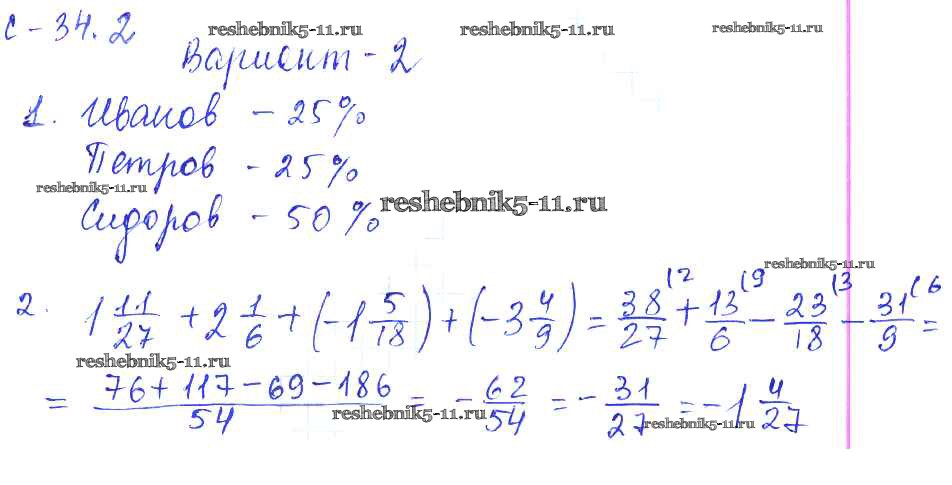 С-34.2 reshebnik5-11.ru reshebnik5-11.ru reshebnik5-11.ru
Вариант-2
1. Иванов - 25%
Петров - 25%
reshebnik5-11.ru
Сидоров - 50% reshebnik5-11.ru
reshebnik5-11.ru
2. 1 11/27 + 2 1/6 + (-1 5/18) + (-3 4/9) = 38/27 (2 + 13/6 (9 - 23/18 (3 - 31/9 (6 =
reshebnik5-11.ru
= (76+117-69-186)/54 = -62/54 = -31/27 = -1 4/27
reshebnik5-11.ru reshebnik5-11.ru